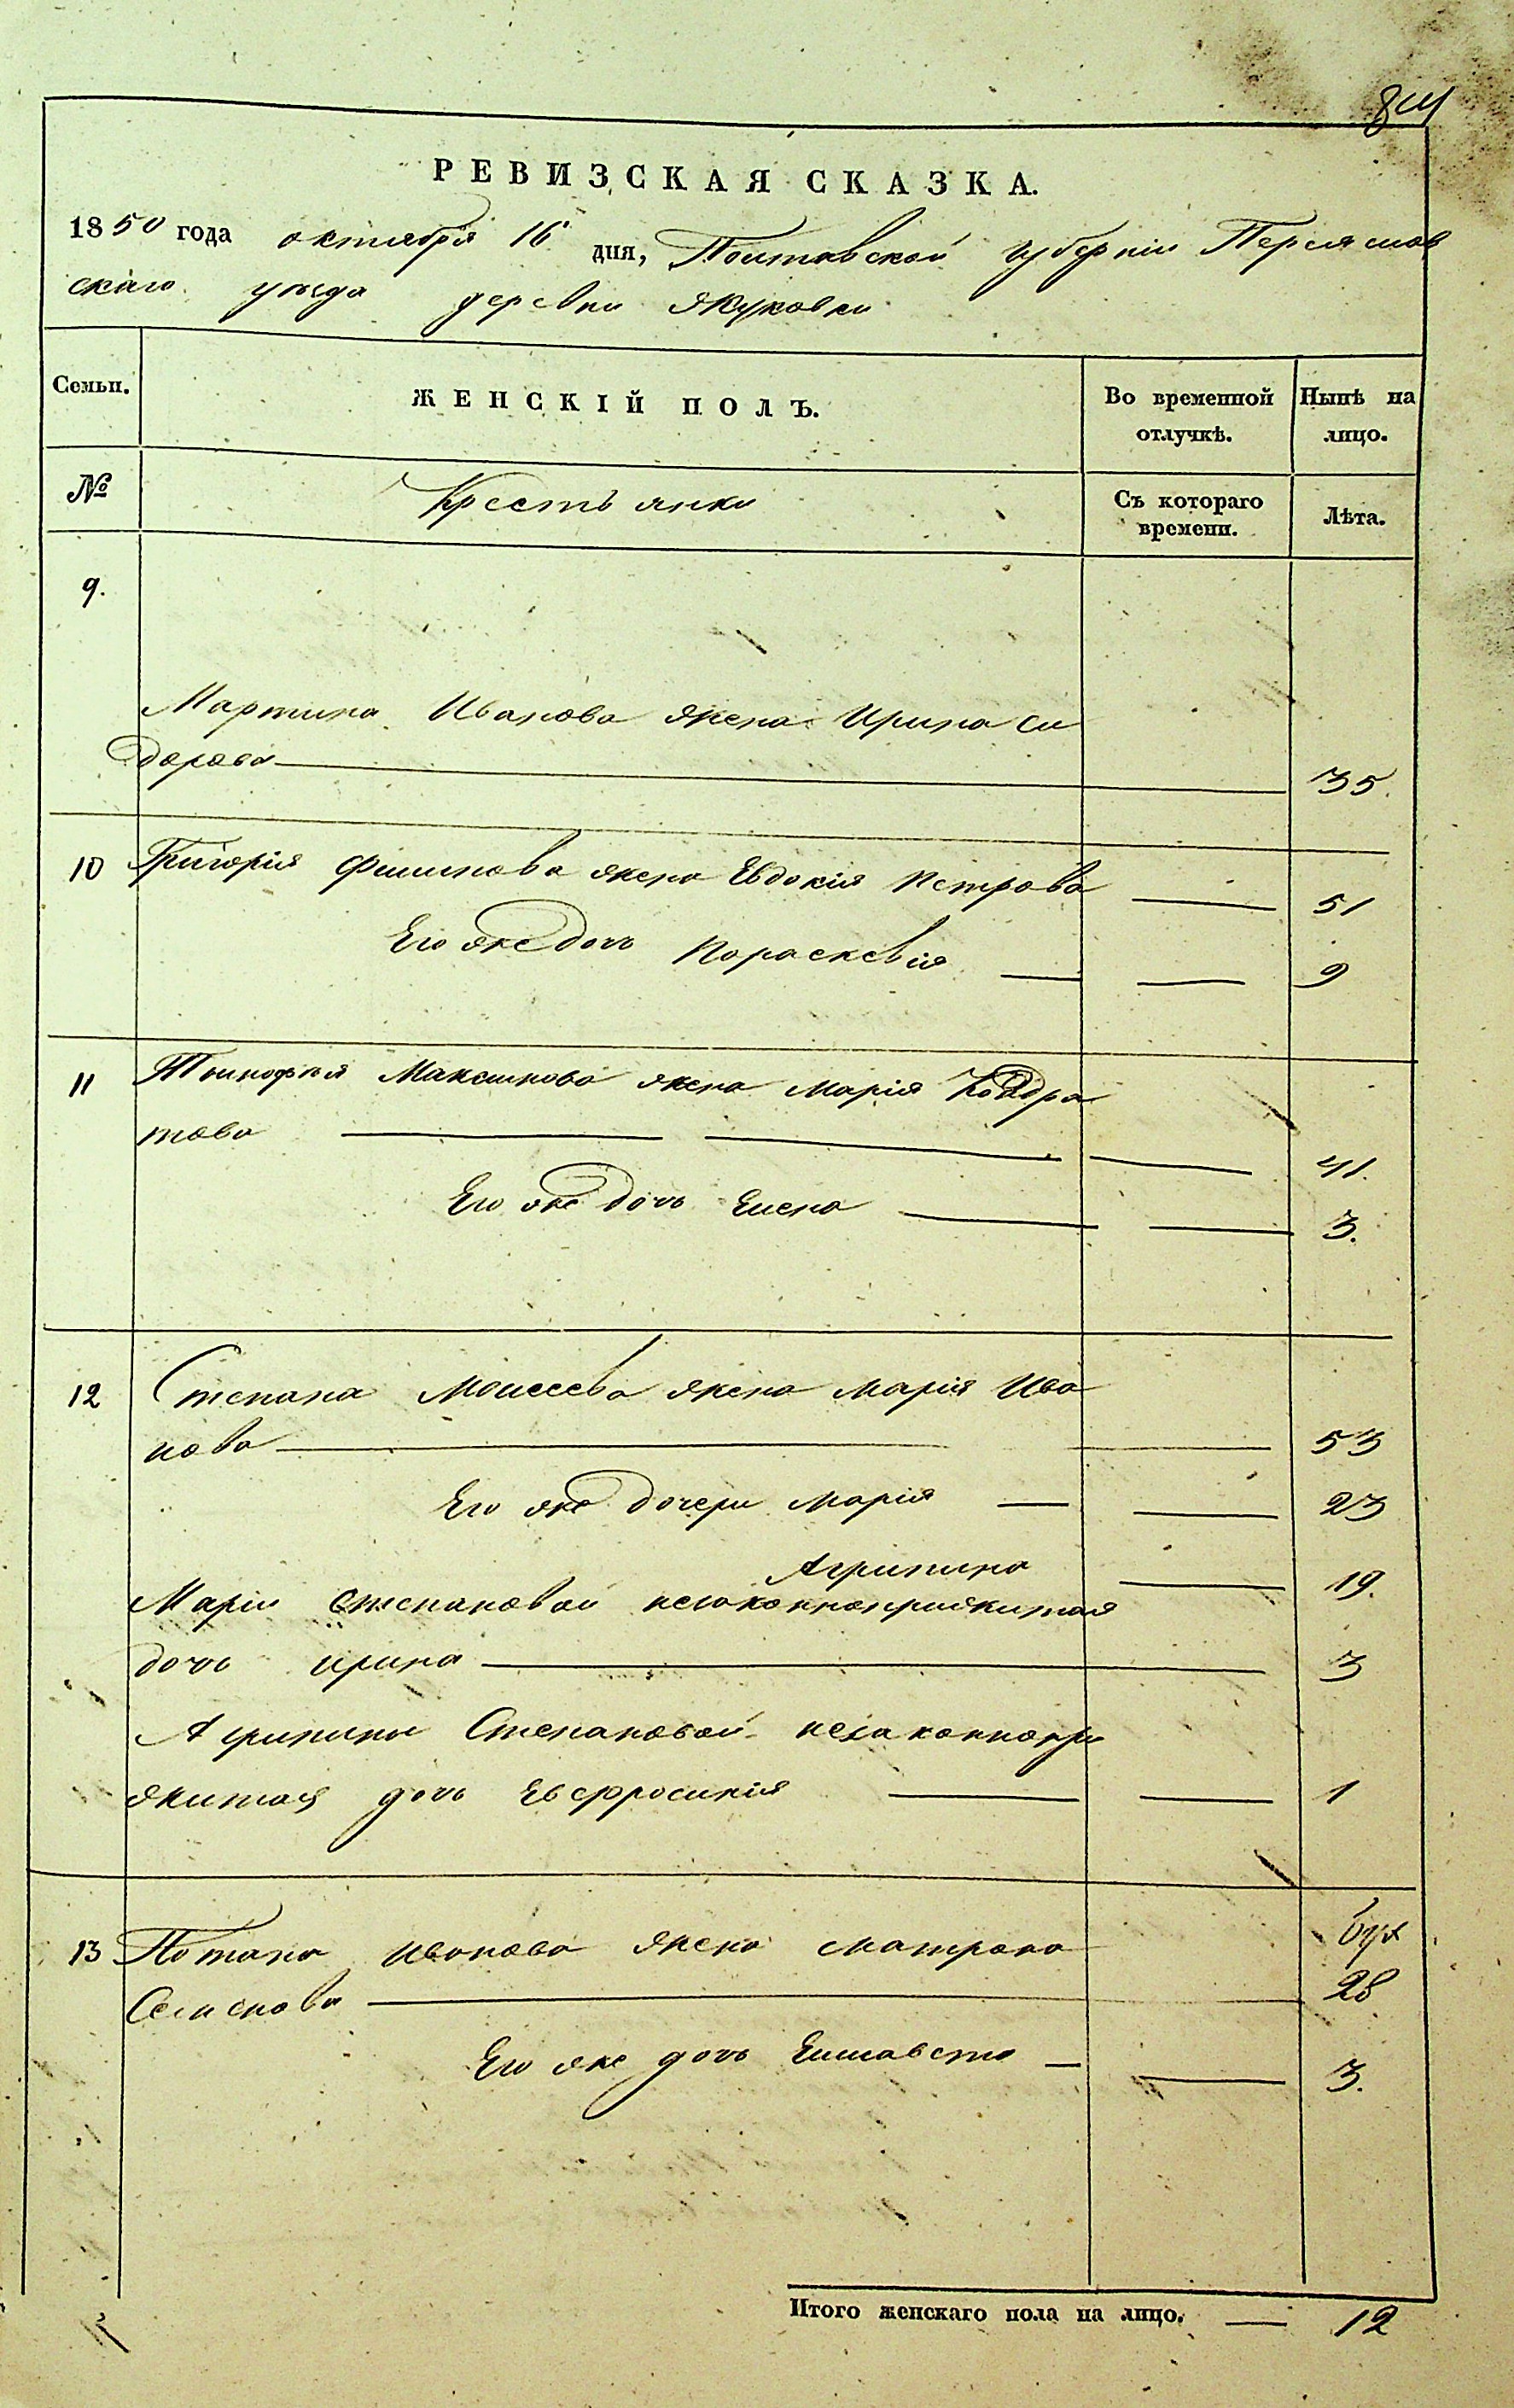 814
РЕВИЗСКАЯ СКАЗКА.
1850 года октября 16 дня, Полтавской губерніи Переяслов
скаго уѣзда деревни Якуховки
Семьи.
ЖЕНСКІЙ ПОЛЪ.
Во временной отлучкѣ.
Нынѣ на лицо.
№
Крестьянки
Съ котораго времени.
Лѣта.
9.
Мартина Иванова жена Ирина Си
дорова 35.
10 Григорія Филипова жена Евдокія Петрова 51
Его же дочь Пораскевія 9
11 Тимофея Максимова жена Марія Кодра
това 41.
Его же дочь Елена 3.
12 Степана Моисеева жена Марія Ива
нова 53
Его же дочери Марія 23
Агрипина 19.
Маріи Степановой незаконноприжитая
дочь Ирина 3
Агрипины Степановой незаконнопри
житая дочь Евфросинія 1
13 Потапа Иванова жена Матрона
Семенова 28
Его же дочь Елисавета 3.
Итого женскаго пола на лицо. 12